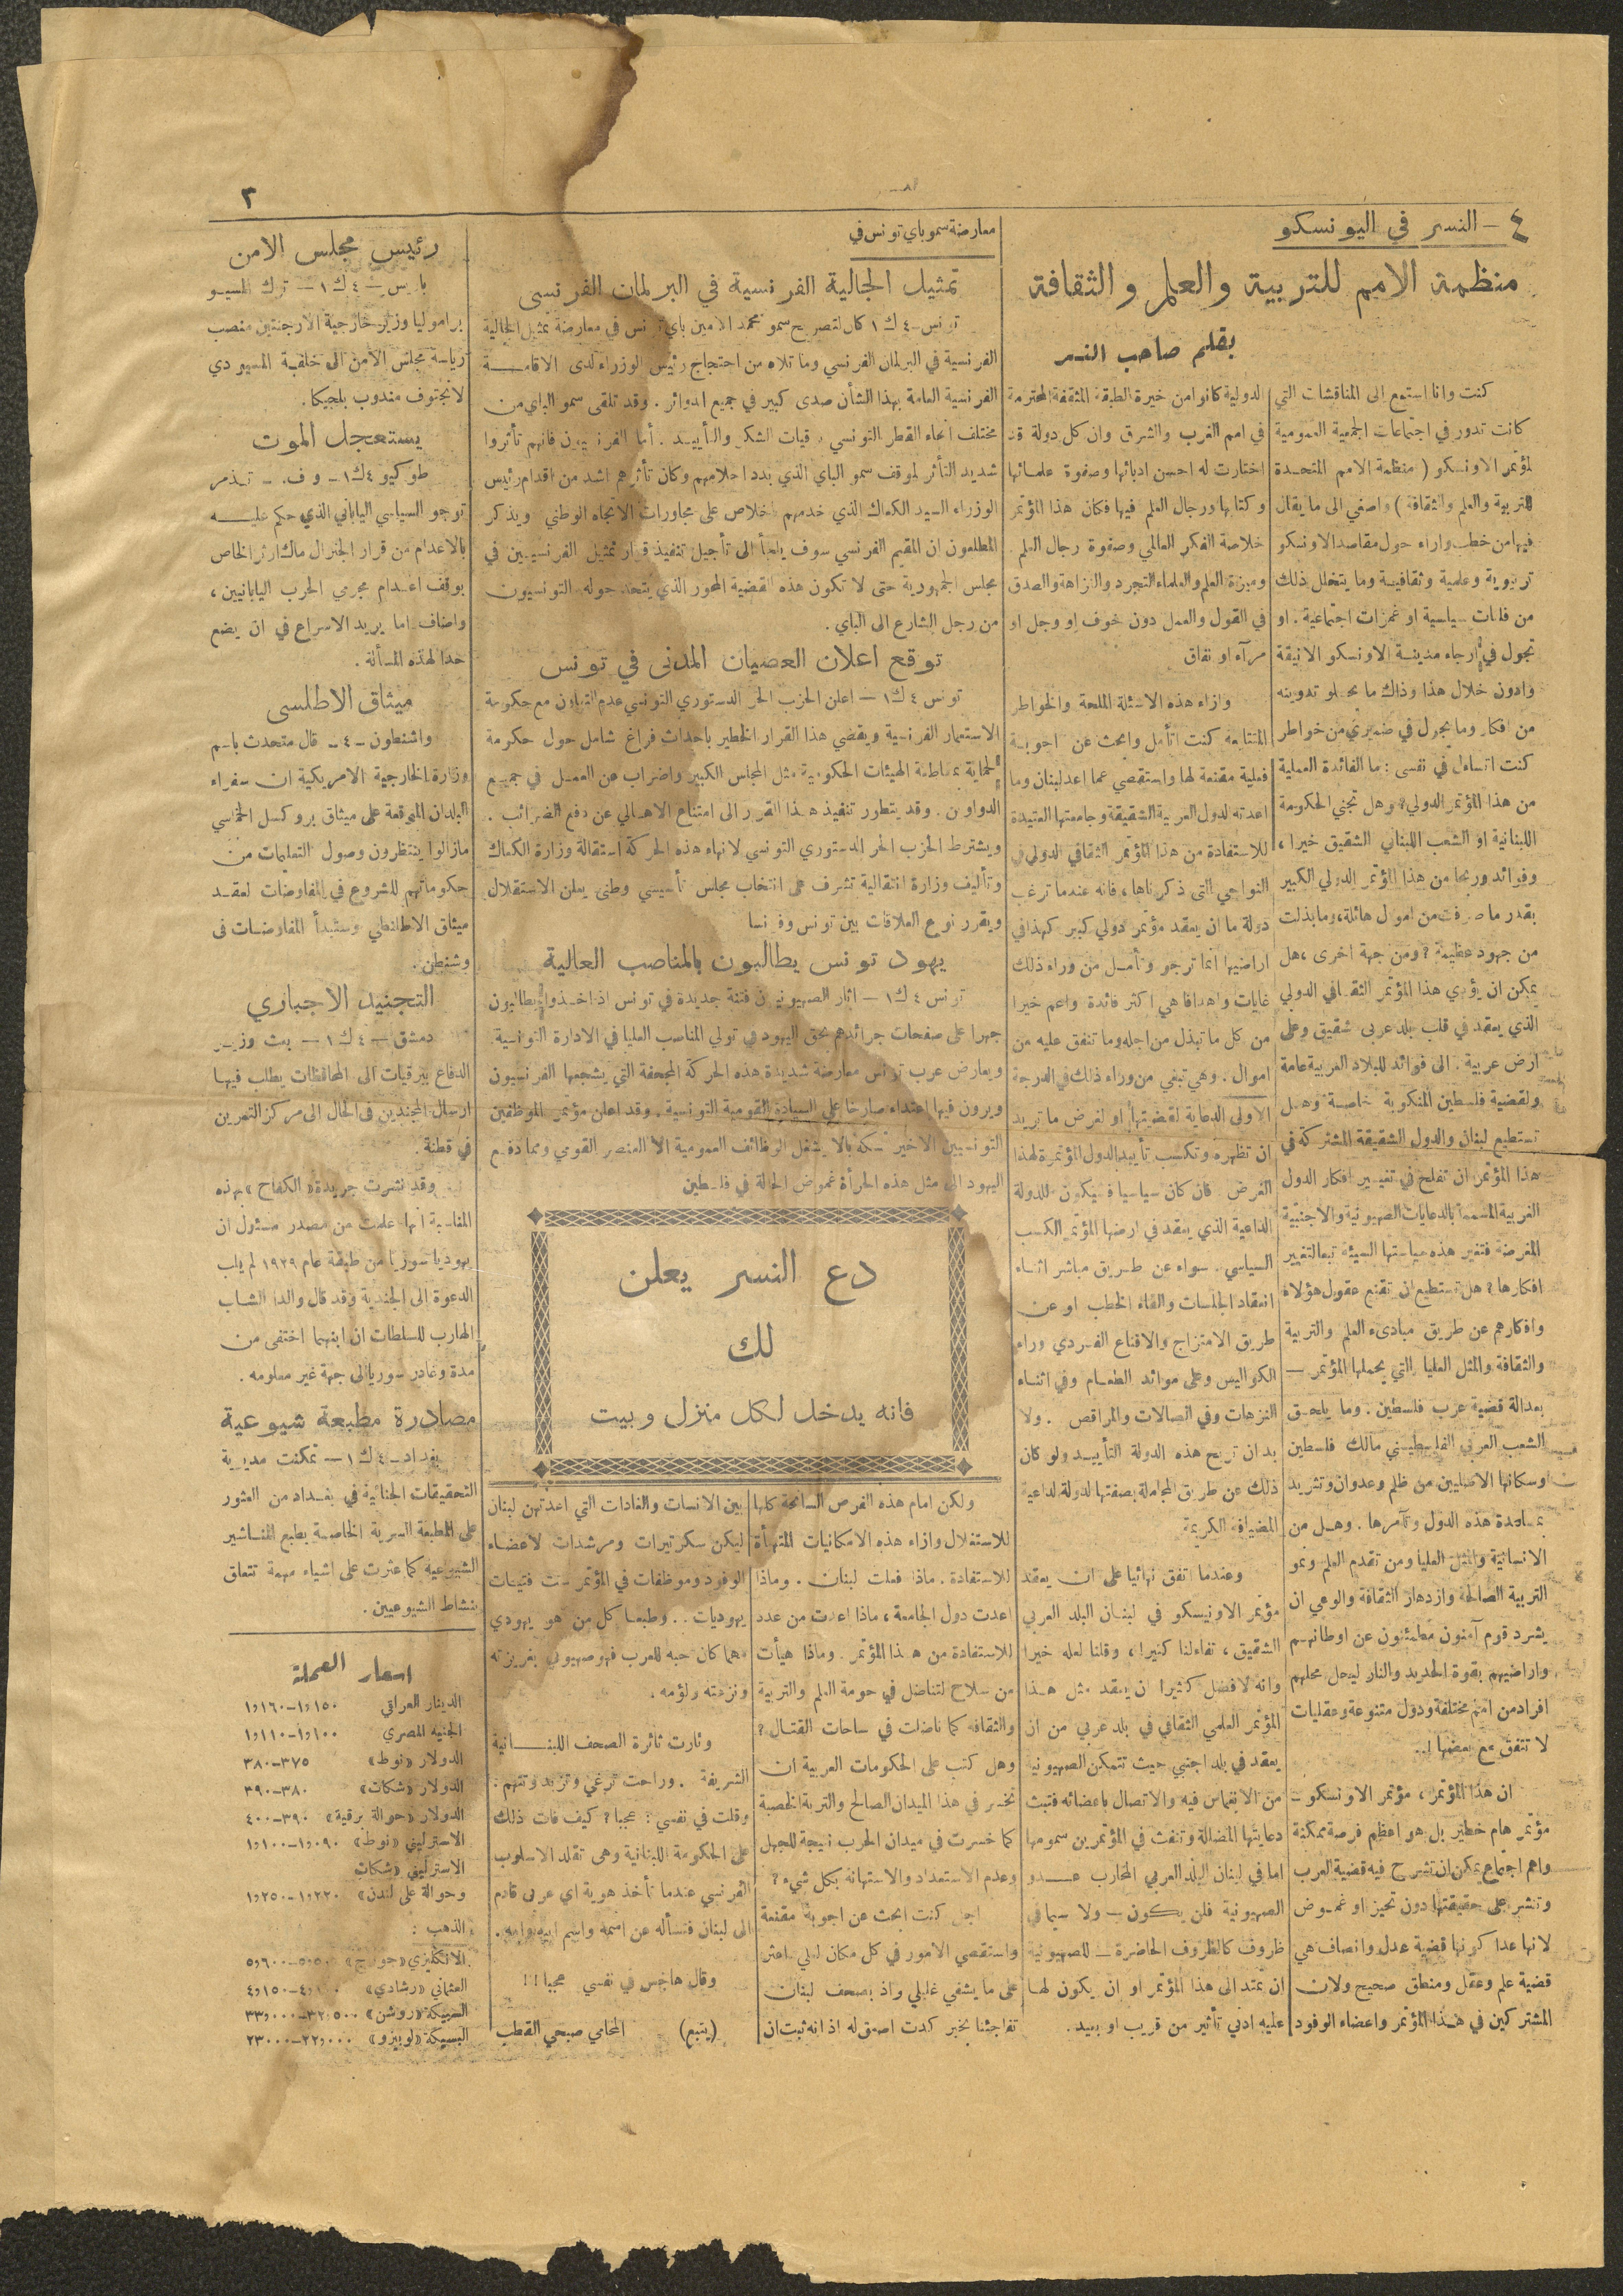 ٣
٤ – النسر في اليونسكو
منظمة الامم للتربية والعلم والثقافة
بقلم صاحب النسر
كنت وانا استمع الى المناقشات التي
كانت تدور في اجتماعات الجمعية العمومية
لمؤتمر الاونسكو ( منظمة الامم المتحدة
للتربية والعلم والثقافة ) واصغي الى ما يقال
فيها من خطب واراء حول مقاصد الاونسكو
تربوية وعلمية وثقافية وما يتخلل ذلك
من فلتات سياسية او غمزات اجتماعية . او
تجول في ارجاء مدينة الاونسكو الانيقة
وادون خلال هذا وذاك ما يحلو تدوينه
من افكار وما يجول في ضميري من خواطر
كنت اتساءل في نفسي : ما الفائدة العملية
من هذا المؤتمر الدولي؟ وهل تجني الحكومة
اللبنانية او الشعب اللبناني الشقيق خيرا ،
وفوائد وربحا من هذا المؤتمر الدولي الكبير
بقدر ما صرفت من اموال هائلة، وما بذلت
من جهود عظيمة ? ومن جهة اخرى ، هل
يمكن ان يؤدي هذا المؤتمر الثقافي الدولي
الذي يعقد في قلب بلد عربي شقيق وعلى
ارض عربية . الى فوائد للبلاد العربية عامة
ولقضية فلسطين المنكوبة خاصة وهل
تستطيع لبنان والدول الشقيقة المشتركة في
هذا المؤتمر ان تفلح في تغيير افكار الدول
الغربية المسممة بالدعايات الصهيونية والاجنبية
المغرضة فتغير هذه سياستها السيئة تبعا لتغيير
افكارها ? هل تستطيع ان تقنع عقول هؤلاء
وافكارهم عن طريق مبادىء العلم والتربية
والثقافة والمثل العليا التي يحملها المؤتمر —
بعدالة قضية عرب فلسطين . وما يلحق
الشعب العربي الفلسطيني مالك فلسطين
وسكانها الاصليين من ظلم وعدوان وتشريد
بمساعدة هذه الدول وتآمرها . وهل من
الانسانية والمثل العليا ومن تقدم العلم ونمو
التربية الصالحة وازدهار الثقافة والوعي ان
يشرد قوم آمنون مطمئنون عن اوطانهم
واراضيهم بقوة الحديد والنار ليحل محلهم
افراد من امم مختلفة ودول متنوعة وعقليات
لا تتفق مع بعضها !..
ان هذا المؤتمر ، مؤتمر الاونسكو –
مؤتمر هام خطير بل هو اعظم فرصة ممكنة
واهم اجتماع يمكن ان تشرح فيه قضية العرب
وتنشر على حقيقتها دون تحيز او غموض
لانها عدا كونها قضية عدل وانصاف هي
قضية علم وعقل ومنطق صحيح ولان
المشتركين في هذا المؤتمر واعضاء الوفود
الدولية كانوا من خيرة الطبقة المثقفة المحترمة
في امم الغرب والشرق وان كل دولة قد
اختارت له احسن ادبائها وصفوة علمائها
وكتابها ورجال العلم فيها فكان هذا المؤتمر
خلاصة الفكر العالمي وصفوة رجال العلم
وميزة العلم والعلماء التجرد والنزاهة والصدق
في القول والعمل دون خوف او وجل او
مرآء او نفاق
وازاء هذه الاسئلة الملحة والخواطر
المتتابعة كنت اتأمل وابحث عن اجوبة
فعلية مقنعة لها واستقصي عما اعد لبنان وما
اعدته لدول العربية الشقيقة وجامعتها العتيدة
للاستفادة من هذا المؤتمر الثقافي الدولي في
النواحي التي ذكرناها ، فانه عندما ترغب
دولة ما ان يعقد مؤتمر دولي كبير كهذا في
اراضيها انما ترجو وتأمل من وراء ذلك
غايات واهدافا هي اكثر فائدة واعم خيرا
من كل ما تبذل من اجله وما تنفق عليه من
اموال . وهي تبغي من وراء ذلك في الدرجة
الاولى الدعاية لقضيتها او لغرض ما تريد
ان تظهره وتكسب تأييد الدول المؤتمرة لهذا
الغرض . فان كان سياسيا فيكون للدولة
الداعية الذي يعقد في ارضها المؤتمر الكسب
السياسي . سواء عن طريق مباشر اثناء
انعقاد الجلسات والقاء الخطب او عن
طريق الامتزاج والاقناع الفردي وراء
الكواليس وعلى موائد الطعام وفي اثناء
النزهات وفي الصالات والمراقص . ولا
بد ان تربح هذه الدولة التأييد ولو كان
ذلك عن طريق المجاملة بصفتها الدولة الداعية
المضيافة الكريمة
وعندما اتفق نهائيا على ان يعقد
مؤتمر الاونيسكو في لبنان البلد العربي
الشقيق ، تفاءلنا كثيرا ، وقلنا لعله خيرا
وانه لافضل كثيرا ان يعقد مثل هذا
المؤتمر العلمي الثقافي في بلد عربي من ان
يعقد في بلد اجنبي حيث تتمكن الصهيونية
من الانغماس فيه والاتصال باعضائه فتبث
دعايتها المضللة وتنفث في المؤتمرين سمومها
اما في لبنان البلد العربي المحارب عدو
الصهيونية فلن يكون — ولا سيما في
ظروف كالظروف الحاضرة – للصهيونية
ان تمتد الى هذا المؤتمر او ان يكون لها
عليه ادنى تأثير من قريب او بعيد .
ولكن امام هذه الفرص السانحة كلها
للاستغلال وازاء هذه الامكانيات المتهيأة
للاستفادة . ماذا فعلت لبنان . وماذا
اعدت دول الجامعة ، ماذا اعدت من عدد
للاستفادة من هذا المؤتمر . وماذا هيأت
من سلاح لتناضل في حومة العلم والتربية
والثقافة كما ناضلت في ساحات القتال ?
وهل كتب على الحكومات العربية ان
تخسر في هذا الميدان الصالح والتربة الخصبة
كما خسرت في ميدان الحرب نتيجة للجهل
وعدم الاستعداد والاستهانة بكل شيء ?
اجل كنت ابحث عن اجوبة مقنعة
واستقصي الامور في كل مكان لعلي اعثر
على ما يشفي غليلي واذ بصحف لبنان
تفاجئنا بخبر كدت اصعق له اذ انه ثبت ان
بين الانسات والغادات التي اعدتهن لبنان
ليكن سكرتيرات ومرشدات لاعضاء
الوفود وموظفات في المؤتمر ست فتيات
يهوديات . . وطبعا كل من هو يهودي
مهما كان حبه للعرب فهو صهيوني بغريزته
ونزعته ولؤمه .
وثارت ثائرة الصحف اللبنانية
الشريفة . وراحت ترغي وتزبد وتتهم :
وقلت في نفسي : عجبا ? كيف فات ذلك
على الحكومة اللبنانية وهي تقلد الاسلوب
الفرنسي عندما تأخذ هوية اي عربي قادم
الى لبنان فتسأله عن اسمه واسم ابيه وامه .
وقال هاجس في نفسي عجبا ! !
(يتبع) المحامي صبحي القطب
معارضة سمو باي تونس في
تمثيل الجالية الفرنسية في البرلمان الفرنسي
تونس – ٤ ك ١ كان لتصريح سمو محمد الامين باي تونس في معارضة تمثيل الجالية
الفرنسية في البرلمان الفرنسي وما تلاه من احتجاج رئيس الوزراء لدى الاقامة
الفرنسية العامة بهذا الشأن صدى كبير في جميع الدوائر . وقد تلقى سمو الباي من
مختلف انحاء القطر التونسي برقيات الشكر والتأييد . أما الفرنسيون فانهم تأثروا
شديد التأثر لموقف سمو الباي الذي بدد احلامهم وكان تأثرهم اشد من اقدام رئيس
الوزراء السيد الكعاك الذي خدمهم باخلاص على مجاورات الاتجاه الوطني ويذكر
المطلعون ان المقيم الفرنسي سوف يلجأ الى تأجيل تنفيذ قرار تمثيل الفرنسيين في
مجلس الجمهورية حتى لا تكون هذه القضية المحور الذي يتحد حوله التونسيون
من رجل الشارع الى الباي .
توقع اعلان العصيان المدني في تونس
تونس ٤ ك ١ — اعلن الحزب الحر الدستوري التونسي عدم التعاون مع حكومة
الاستعمار الفرنسية ويقضي هذا القرار الخطير باحداث فراغ شامل حول حكومة
الحماية بمقاطعة الهيئات الحكومية مثل المجلس الكبير واضراب عن العمل في جميع
الدواوين . وقد يتطور تنفيذ هذا القرر الى امتناع الاهالي عن دفع الضرائب .
ويشترط الحزب الحر الدستوري التونسي لانهاء هذه الحركة استقالة وزارة الكعاك
وتأليف وزارة انتقالية تشرف على انتخاب مجلس تأسيسي وطني يعلن الاستقلال
ويقرر نوع العلاقات بين تونس وفرنسا
يهود تونس يطالبون بالمناصب العالية
تونس ٤ ك ١ — اثار الصهيونيون فتنة جديدة في تونس اذ اخذوا يطالبون
جهرا على صفحات جرائدهم بحق اليهود في تولي المناصب العليا في الادارة التونسية .
ويعارض عرب تونس معارضة شديدة هذه الحركة المجحفة التي يشجعها الفرنسيون
ويرون فيها اعتداء صارخا على السيادة القومية التونسية . وقد اعلن مؤتمر الموظفين
التونسيين الاخير تمسكه بالا يشغل الوظائف العمومية الا العنصر القومي ومما دفع
اليهود الى مثل هذه الجرأة غموض الحالة في فلسطين
دع النسر يعلن
لك
فانه يدخل لكل منزل وبيت
رئيس مجلس الامن
باريس – ٤ ك ١ – ترك المسيو
براموليا وزير خارجية الارجنتين منصب
رياسة مجلس الامن الى خلفه المسيو دي
لانجتوف مندوب بلجيكا.
يستعجل الموت
طوكيو ٤ ك ١ – و ف. – تذمر
توجو السياسي الياباني الذي حكم عليه
بالاعدام من قرار الجنرال ماك ارثر الخاص
بوقف اعدام مجرمي الحرب اليابانيين ،
واضاف اما يريد الاسراع في ان يضع
حدا لهذه المسألة .
ميثاق الاطلسي
واشنطون – ٤ – قال متحدث باسم
وزارة الخارجية الامريكية ان سفراء
البلدان الموقعة على ميثاق بروكسل الخماسي
مازالوا ينتظرون وصول التعليمات من
حكوماتهم للشروع في المفاوضات لعقد
ميثاق الاطلنطي وستبدأ المفاوضات في
وشنطن .
التجنيد الاجباري
دمشق – ٤ ك ١ – بعث وزير
الدفاع ببرقيات الى المحافظات يطلب فيها
ارسال المجندين في الحال الى مركز التمرين
في قطنة .
وقد نشرت جريدة « الكفاح » بهذه
المناسبة انها علمت من مصدر مسئول ان
يهوديا سوريا من طبقة عام ١٩٢٩ لم يلب
الدعوة الى الجندية وقد قال والدا الشاب
الهارب للسلطات ان ابنهما اختفى من
مدة وغادر سوريا الى جهة غير معلومه .
مصادرة مطبعة شيوعية
بغداد – ٤ ك ١ – تمكنت مديرية
التحقيقات الجنائية في بغداد من العثور
على المطبعة السرية الخاصة بطبع المناشير
الشيوعيه كما عثرت على اشياء مهمة تتعلق
بنشاط الشيوعيين .
اسعار العملة
الدينار العراقي ١٫١٥٠–١٫١٦٠
الجنيه المصري ١٫١٠٠–١٫١١٠
الدولار «نوط» ٣٧٥–٣٨٠
الدولار «شكات» ٣٨٠–٣٩٠
الدولار «حوالة برقية» ٣٩٠–٤٠٠
الاسترليني «نوط» ١٫٠٩٠–١٫١٠٠
الاسترليني «شكات
وحوالة على لندن» ١٫٢٢٠–١٫٢٥٠
الذهب :
الانكليزي «جورج» ٥٫٦٠٠
العثماني «رشادي» ٤٫١٥٠
السبيكة «روشن» ٣٢٫٥٠٠–٣٣٫٠٠٠
البسيكة «لوبيزو» ٢٢٫٠٠٠–٢٣٠٠٠